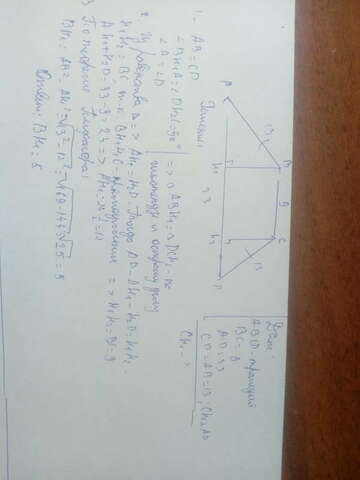 Дано:
ABCD - трапеция
BC = 9
AD = 33
CD = AB = 13; CH₂ ⊥ AD
CH₂ - ?
A
B
C
D
H₁
H₂
13
9
13
33
Решение:
1. AB = CD
∠BH₁A = ∠DH₂C = 90°
∠A = ∠D
=> △ABH₁ = △DCH₂ - по
гипотенузе и острому углу
2. Из равенства △ => AH₁ = H₂D. Тогда AD - AH₁ - H₂D = H₁H₂
H₁H₂ = BC, т.к. BH₁H₂C - прямоугольник => H₁H₂ = BC = 9
AH₁ + H₂D = 33 - 9 = 24 => AH₁ = 24/2 = 12
3) По теореме Пифагора:
BH₁ = AB² - AH₁² = √13² - 12² = √169 - 144 = √25 = 5
Ответ: BH₁ = 5